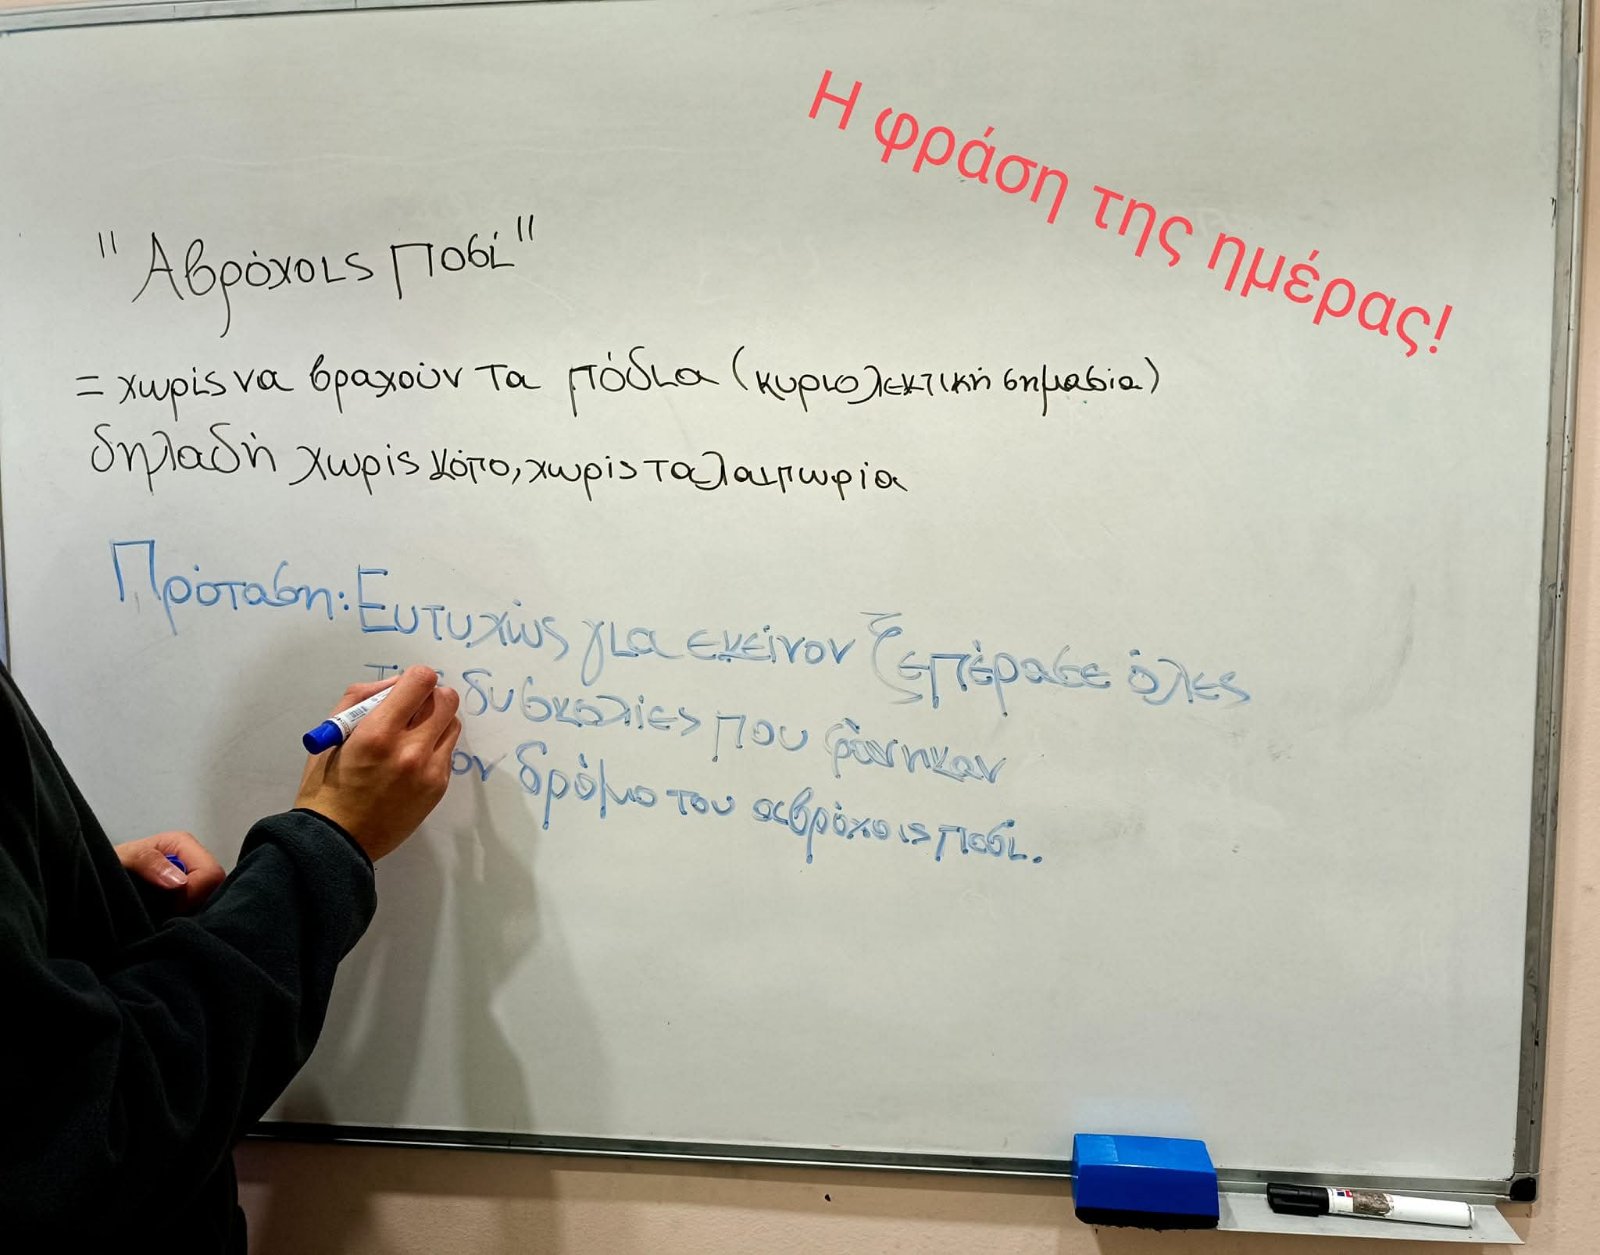 Η φράση της ημέρας!
"Αβρόχοις ποσί"
= χωρίς να βραχούν τα πόδια (κυριολεκτική σημασία)
δηλαδή χωρίς κόπο, χωρίς ταλαιπωρία
Πρόταση: Ευτυχώς για εκείνον ξεπέρασε όλες
δυσκολίες που φάνηκαν
δρόμο του αβρόχοις ποσί.